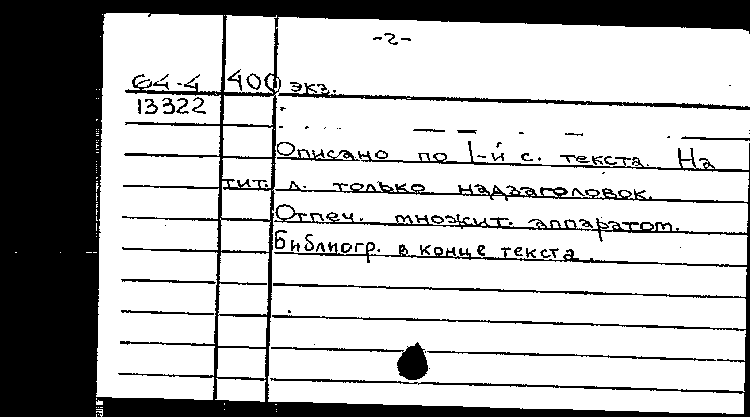 -2-
64-4 400 экз.
13322
Описано по 1-й с. текста. На
тит. л. только надзаголовок.
Отпеч. множит. аппаратом.
Библиогр. в конце текста.